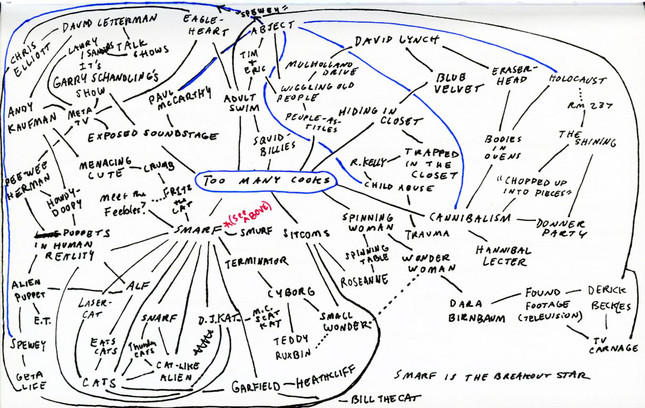 SPEWEY=
DAVID LETTERMAN
EAGLE-
HEART
ABJECT
CHRIS
ELLIOTT
LARRY
SANDERS
TALK
SHOWS
IT'S
GARRY SCHANDLING'S
SHOW
TIM
+
ERIC
DAVID LYNCH
MULHOLLAND
DRIVE
WIGGLING OLD
PEOPLE
BLUE
VELVET
ERASER-
HEAD
HOLOCAUST
RM 237
ANDY
KAUFMAN
META
TV
PAUL
McCARTHY
ADULT
SWIM
PEOPLE-AS-
TITLES
HIDING IN
CLOSET
EXPOSED SOUNDSTAGE
SQUID-
BILLIES
BODIES
IN
OVENS
THE
SHINING
PEEWEE
HERMAN
MENACING
CUTE
CRUMB
R. KELLY
TRAPPED
IN THE
CLOSET
HOWDY-
DOODY
MEET the
FEEBLES?
FRITZ
THE
CAT
TOO MANY COOKS
CHILD ABUSE
"CHOPPED UP
INTO PIECES"
PUPPETS
IN HUMAN
REALITY
SMARF
*(SEE
ABOVE)
SMURF
SITCOMS
SPINNING
WOMAN
CANNIBALISM
DONNER
PARTY
TRAUMA
HANNIBAL
LECTER
TERMINATOR
SPINNING
TABLE
ROSEANNE
WONDER
WOMAN
ALIEN
PUPPET
ALF
LASER-
CAT
E.T.
CYBORG
SMALL
WONDER
DARA
BIRNBAUM
FOUND
FOOTAGE
(TELEVISION)
DERICK
BECKLES
TV
CARNAGE
SNARF
D.J. KAT
M.C.
SCAT
KAT
SPEWEY
EATS
CATS
Thunder
CATS
CAT-LIKE
ALIEN
TEDDY
RUXBIN
GET A
LIFE
CATS
GARFIELD
HEATHCLIFF
BILL THE CAT
SMARF IS THE BREAKOUT STAR